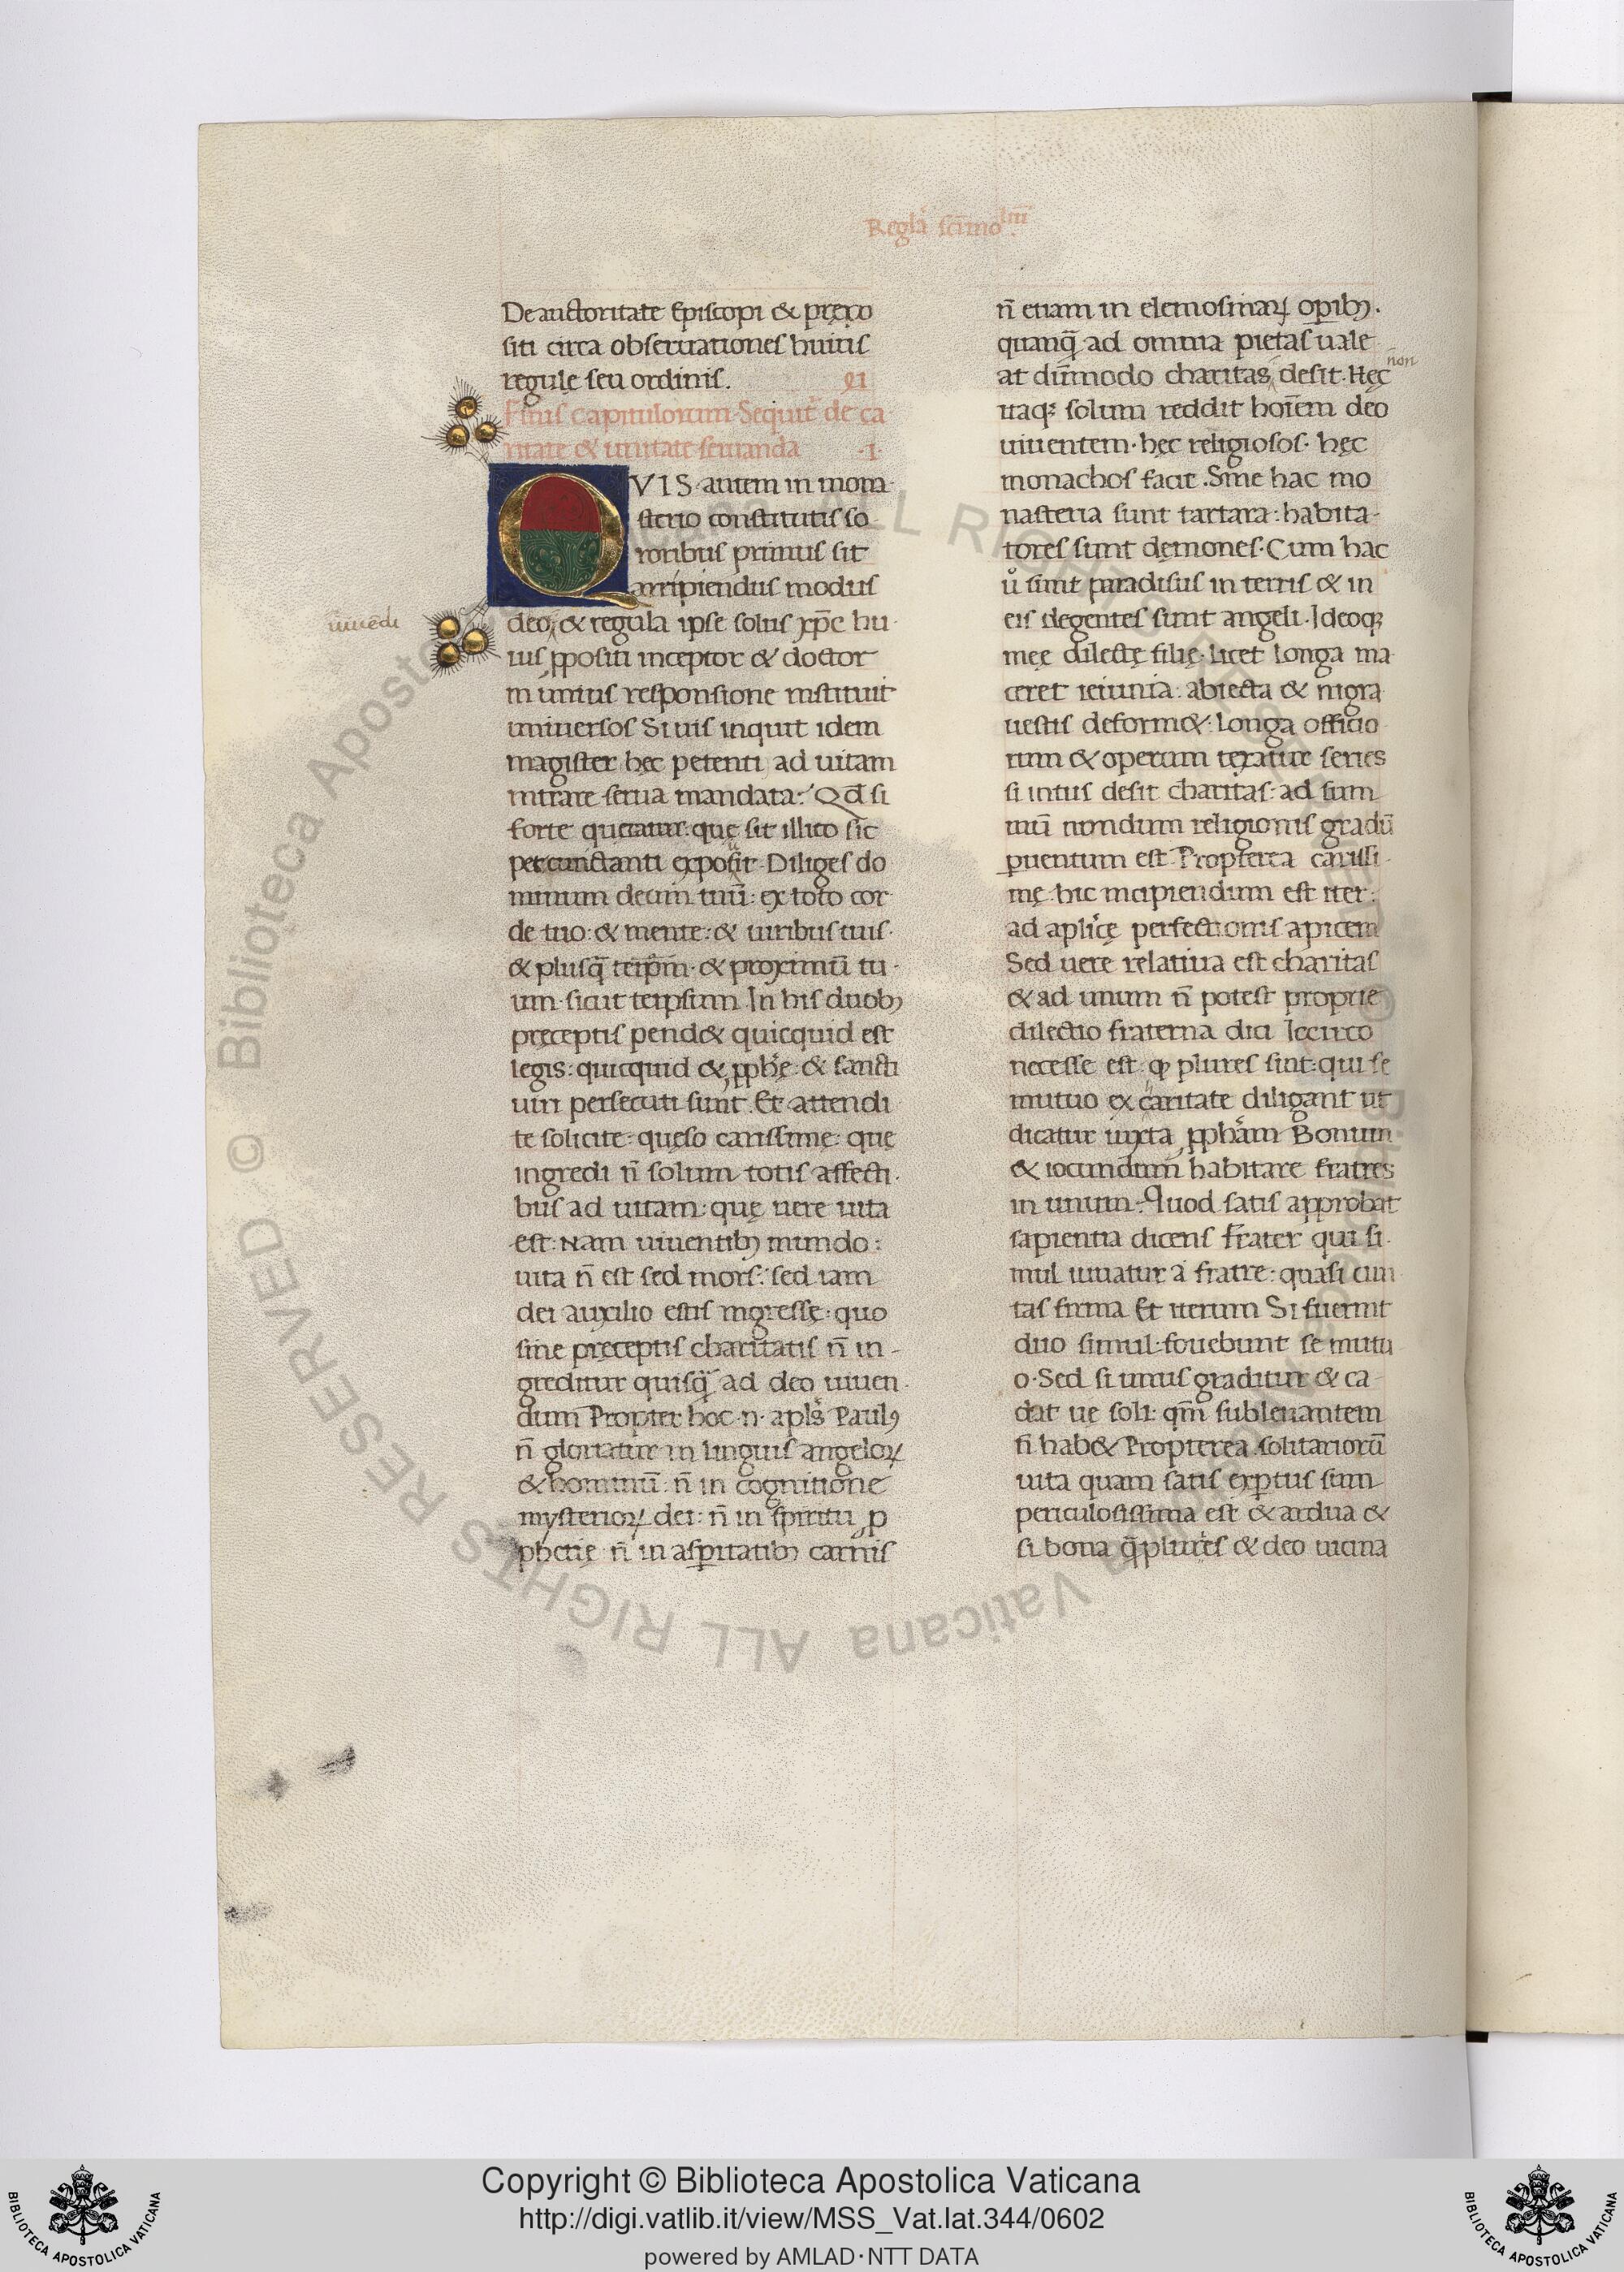 Regła sc̄imo lm̄
De auctoritate Episcopi & prępo
siti circa obseruationes huius
regulę seu ordinis. XI
Finis capitulorum. Sequit̃ de ca
ritate & unitate seruanda .I.
QVIS autem in mona
sterio constitutis so
roribus primus sit
arripiendus modus
deo, & regula ipse solus xp̄c hu
ius ꝓpositi inceptor & doctor
in unius responsione instituit
uniuersos Si uis inquit idem
magister hęc petenti ad uitam
intrare serua mandata: Qd̄ si
forte queratur: quę sit illico sic
percunctanti exposuit. Diliges do
minum deum tuū: ex toto cor
de tuo: & mente: & uiribus tuis.
& plusq̄ teip̄m. & proximū tu
um. sicut teipsum In his duobꝯ
pręceptis pend& quicquid est
legis: quicquid & ꝓphę: & sancti
uiri persecuti sunt. Et attendi
te solicite: quęso carissime: que
ingredi n̄ solum totis affecti
bus ad uitam: quę uere uita
est: Nam uiuentibꝯ mundo:
uita n̄ est sed mors: sed iam
dei auxilio estis ingressę: quo
sine pręceptis charitatis n̄ in-
greditur quisq̄ ad deo uiuen
dum Propter hoc .n. apl̄s Paulꝯ
n̄ gloriatur in linguis angeloꝝ
& hominū: n̄ in cognitione
mysterioꝝ dei: n̄ in spiritu ꝓ
phetię n̄ in asꝑitatibꝯ carnis
uiuēdi
n̄ etiam in elemosinaꝝ opibꝯ.
quanq̄ ad omnia pietas uale
at dūmodo charitas desit. Hęc
non
itaqꝫ solum reddit hoīem deo
uiuentem. hęc religiosos. hęc
monachos facit. Sine hac mo
nasteria sunt tartara: habita-
tores sunt dęmones. Cum hac
u̾ sunt paradisus in terris & in
eis degentes sunt angeli. Ideoqꝫ
meę dilectę filię. licet longa ma
ceret ieiunia: abiecta & nigra
uestis deform&: longa officio
rum & operum texatur series
si intus desit charitas: ad sum
mū nondum religionis gradū
ꝑuentum est. Propterea carissi-
mę. hic incipiendum est iter:
ad aplicę perfectionis apicem
Sed uere relatiua est charitas
& ad unum n̄ potest proprie
dilectio fraterna dici Iccirco
necesse est: ꝙ plures sint: qui se
mutuo ex caritate diligant ut
dicatur iuxta ꝓpham Bonum
& iocundum habitare fratres
in unum: Quod satis approbat
sapientia dicens Frater qui si
mul iuuatur a fratre: quasi ciui
tas firma Et iterum Si fuerint
duo simul: fouebunt se mutu
o. Sed si unus graditur & ca
dat ue soli: qm̄ subleuantem
n̄ hab& Propterea solitariorū
uita quam satis exꝑtus sum
periculosissima est & ardua &
si bona q̄ plures & deo uicina
Copyright © Biblioteca Apostolica Vaticana
http://digi.vatlib.it/view/MSS_Vat.lat.344/0602
powered by AMLAD·NTT DATA
BIBLIOTECA APOSTOLICA VATICANA
BIBLIOTECA APOSTOLICA VATICANA
© Biblioteca Apostolica Vaticana ALL RIGHTS RESERVED